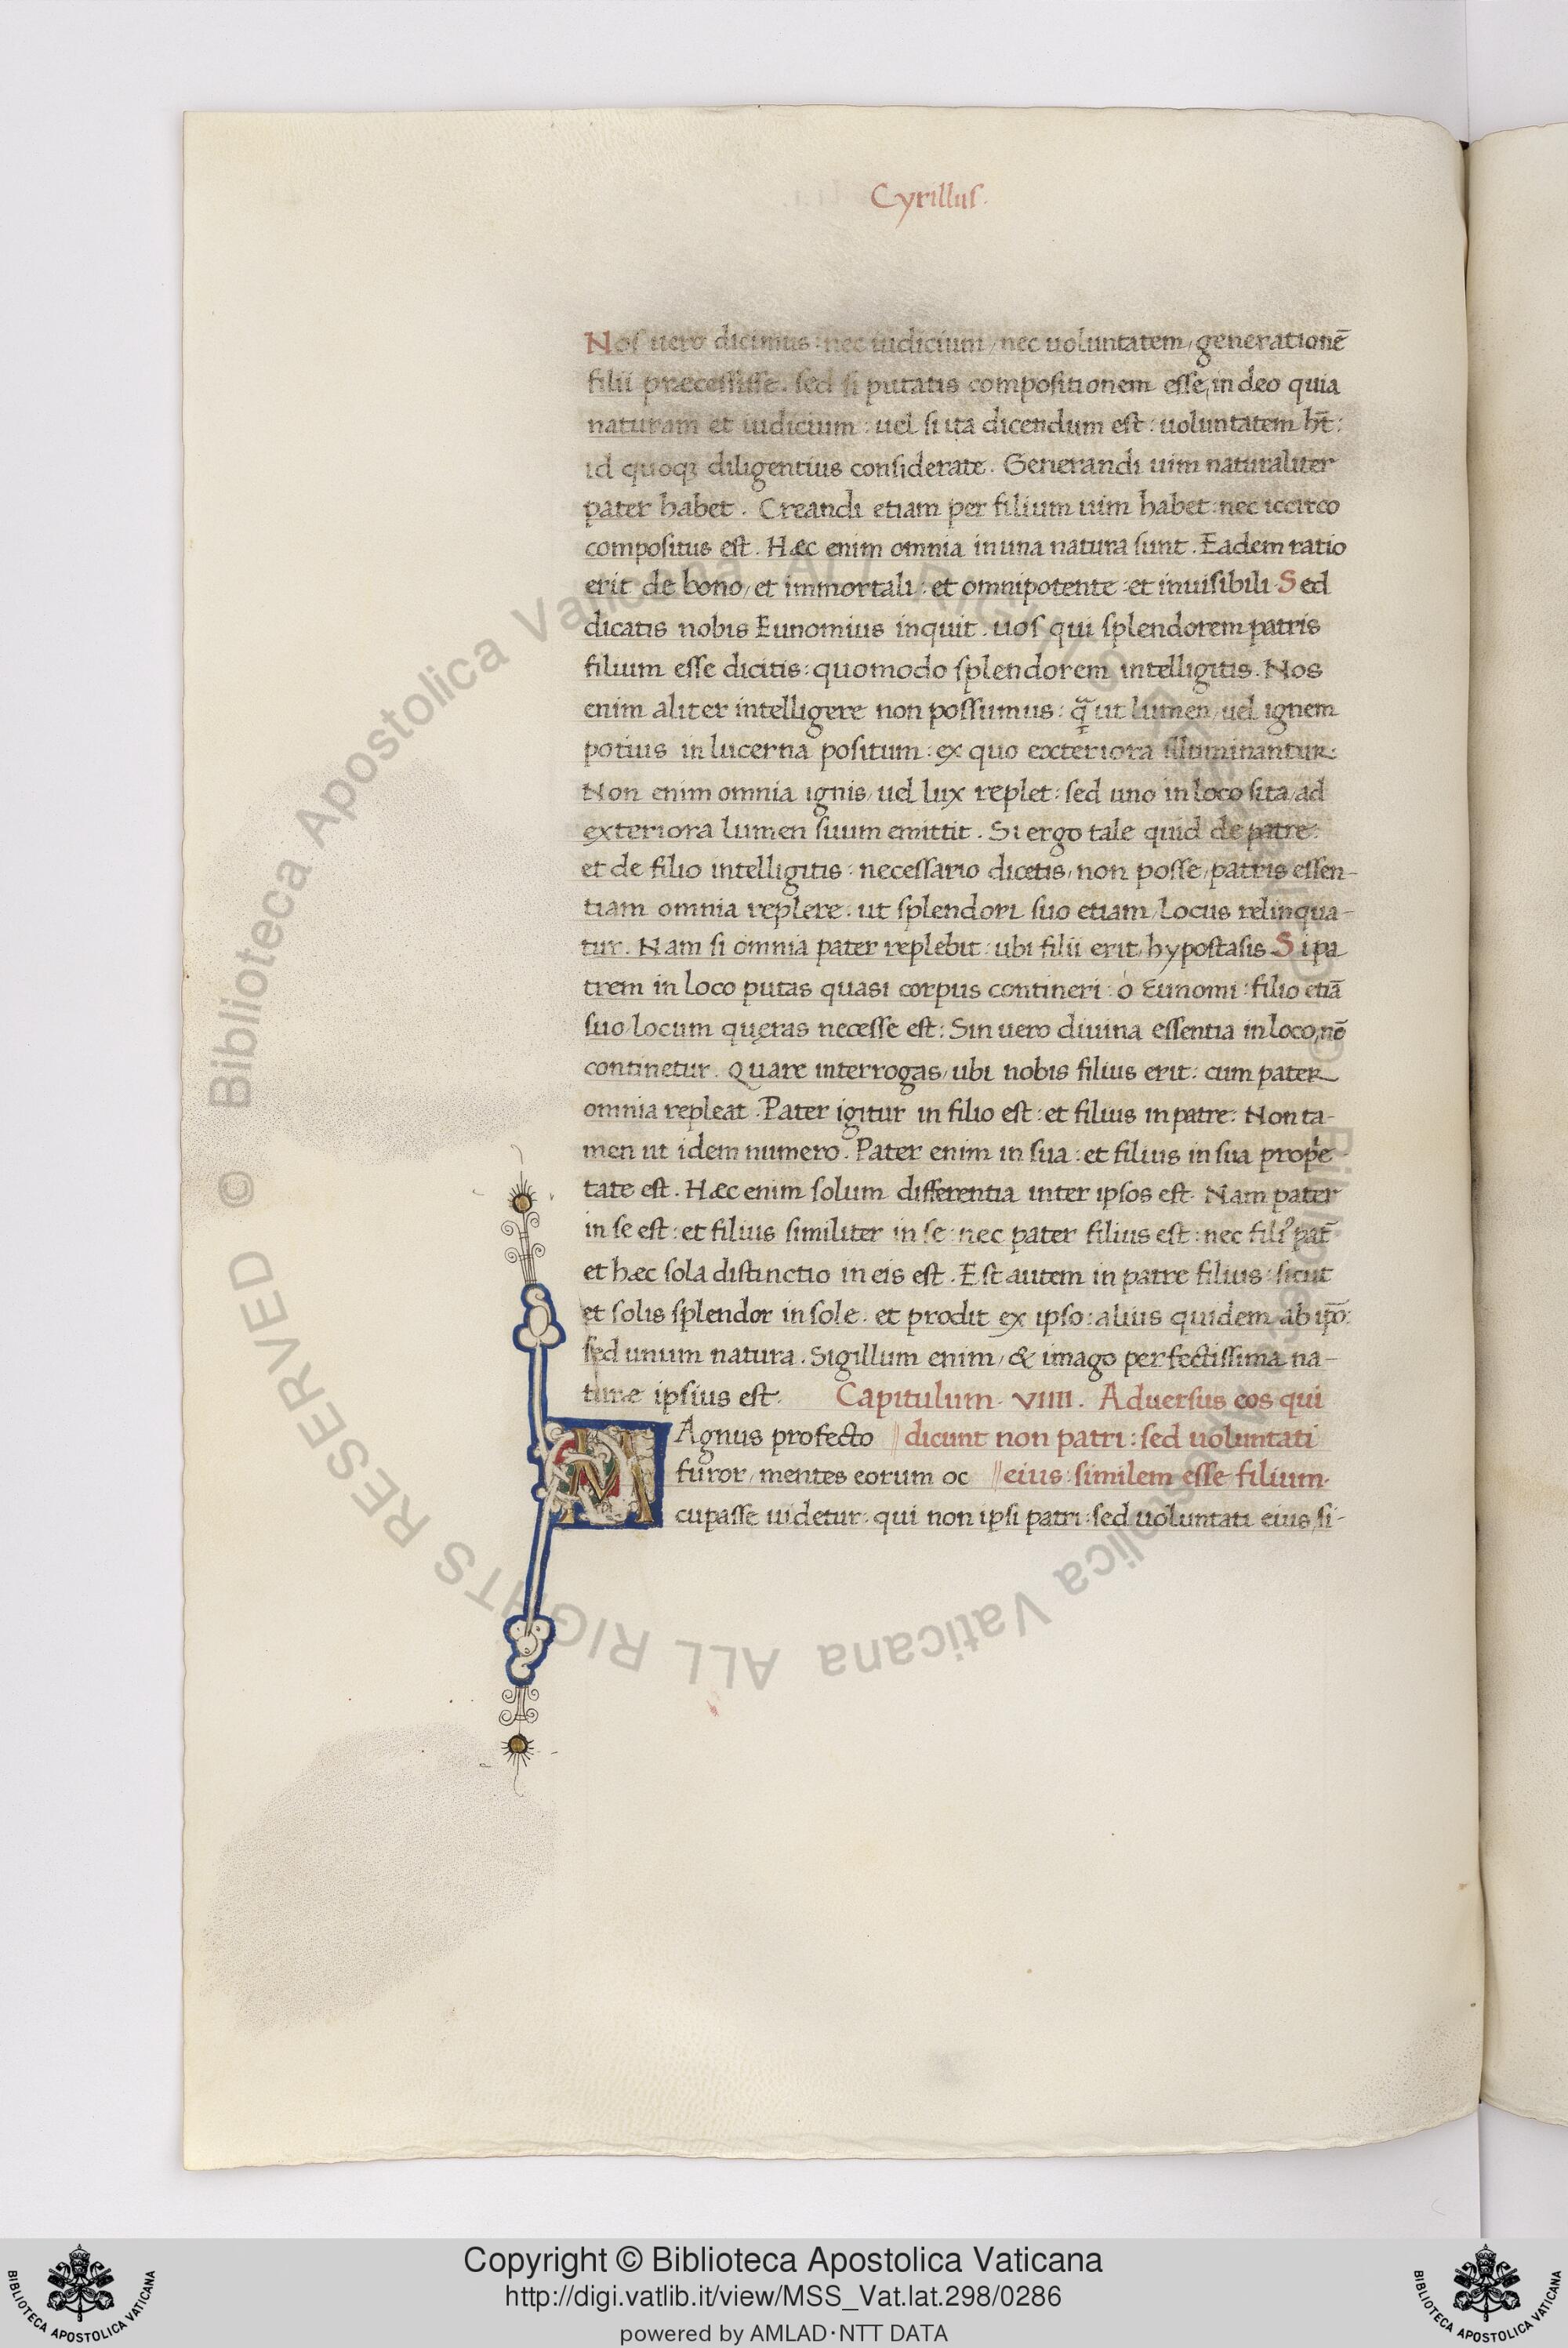 Cyrillus.
Nos uero dicimus: nec iudicium, nec uoluntatem, generationē
filii præcessisse. sed si putatis compositionem esse, in deo quia
naturam et iudicium: uel si ita dicendum est: uoluntatem ht̄:
id quoqꝫ diligentius considerate. Generandi uim naturaliter
pater habet. Creandi etiam per filium uim habet: nec iccirco
compositus est. Hæc enim omnia in una natura sunt. Eadem ratio
erit de bono, et immortali: et omnipotente: et inuisibili. Sed
dicatis nobis Eunomius inquit. uos qui splendorem patris
filium esse dicitis: quomodo splendorem intelligitis. Nos
enim aliter intelligere non possumus: ꝙ̃ ut lumen, uel ignem
potius in lucerna positum: ex quo exteriora illuminantur:
Non enim omnia ignis, uel lux replet: sed uno in loco sita, ad
exteriora lumen suum emittit. Si ergo tale quid de patre:
et de filio intelligitis: necessario dicetis, non posse, patris essen-
tiam omnia replere. ut splendori suo etiam, locus relinqua-
tur. Nam si omnia pater replebit: ubi filii erit, hypostasis. Si pa
trem in loco putas quasi corpus contineri: ó Eunomi: filio etiā
suo, locum quęras necesse est: Sin uero diuina essentia in loco, nō
continetur. Quare interrogas, ubi nobis filius erit: cum pater
omnia repleat. Pater igitur in filio est: et filius in patre: Non ta-
men ut idem numero. Pater enim in sua: et filius in sua prop̍e
tate est. Hæc enim solum differentia inter ipsos est. Nam pater
in se est: et filius similiter in se: nec pater filius est: nec filiꝰ pat̄
et hæc sola distinctio in eis est. Est autem in patre filius: sicut
et solis splendor in sole. et prodit ex ipso: alius quidem ab ip̄o:
sed unum natura. Sigillum enim, & imago perfectissima na-
turæ ipsius est. Capitulum. VIIII. Aduersus eos qui
MAgnus profecto dicunt non patri: sed uoluntati
furor, mentes eorum oc eius: similem esse filium.
cupasse uidetur: qui non ipsi patri: sed uoluntati eius, si-
© Biblioteca Apostolica Vaticana ALL RIGHTS RESERVED
© Biblioteca Apostolica Vaticana ALL RIGHTS RESERVED
Copyright © Biblioteca Apostolica Vaticana
http://digi.vatlib.it/view/MSS_Vat.lat.298/0286
powered by AMLAD·NTT DATA
BIBLIOTECA APOSTOLICA VATICANA
BIBLIOTECA APOSTOLICA VATICANA